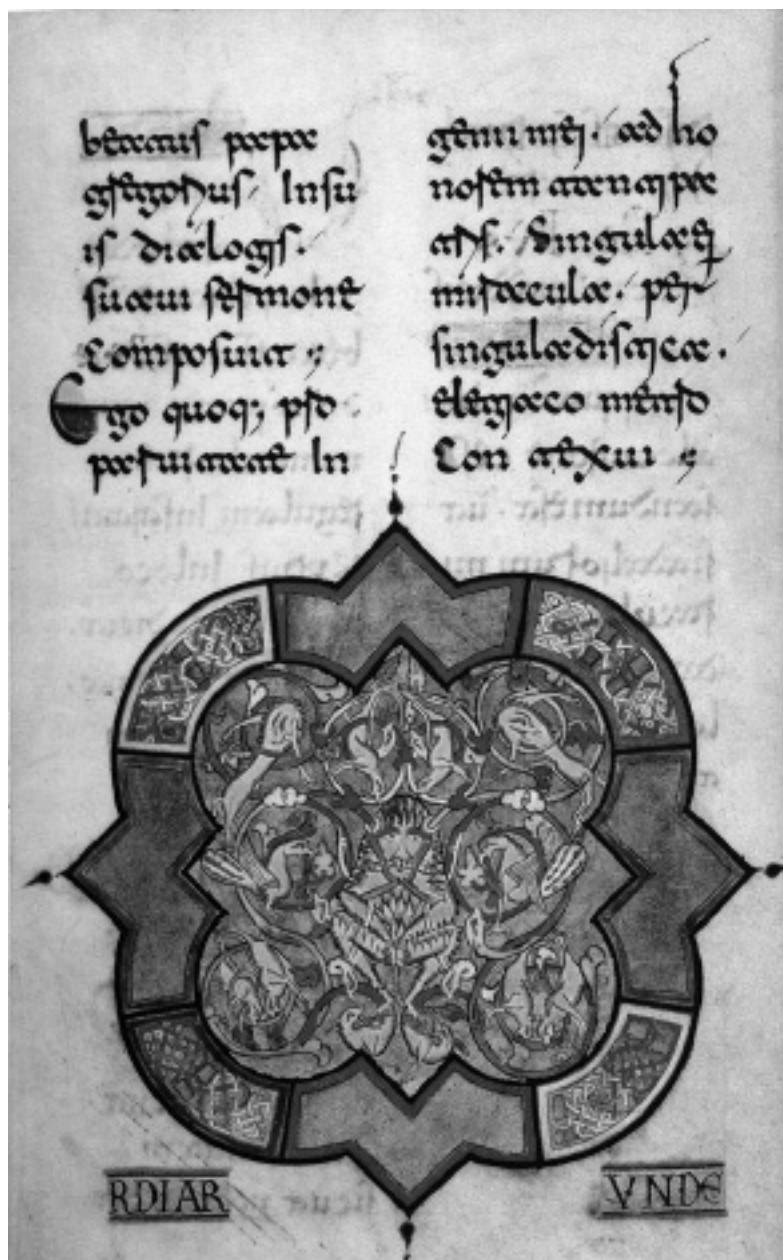 beatus papa
gregorius. In su
is dialogis.
suaui sermone
Composuit ;
Ego quoq; pro
paruitate In
genii mei. ad ho
norem tanti pa
tris. Singula
miracula. per
singula distica.
elegiaco metro
Contexui ;
RDIAR
VNDE